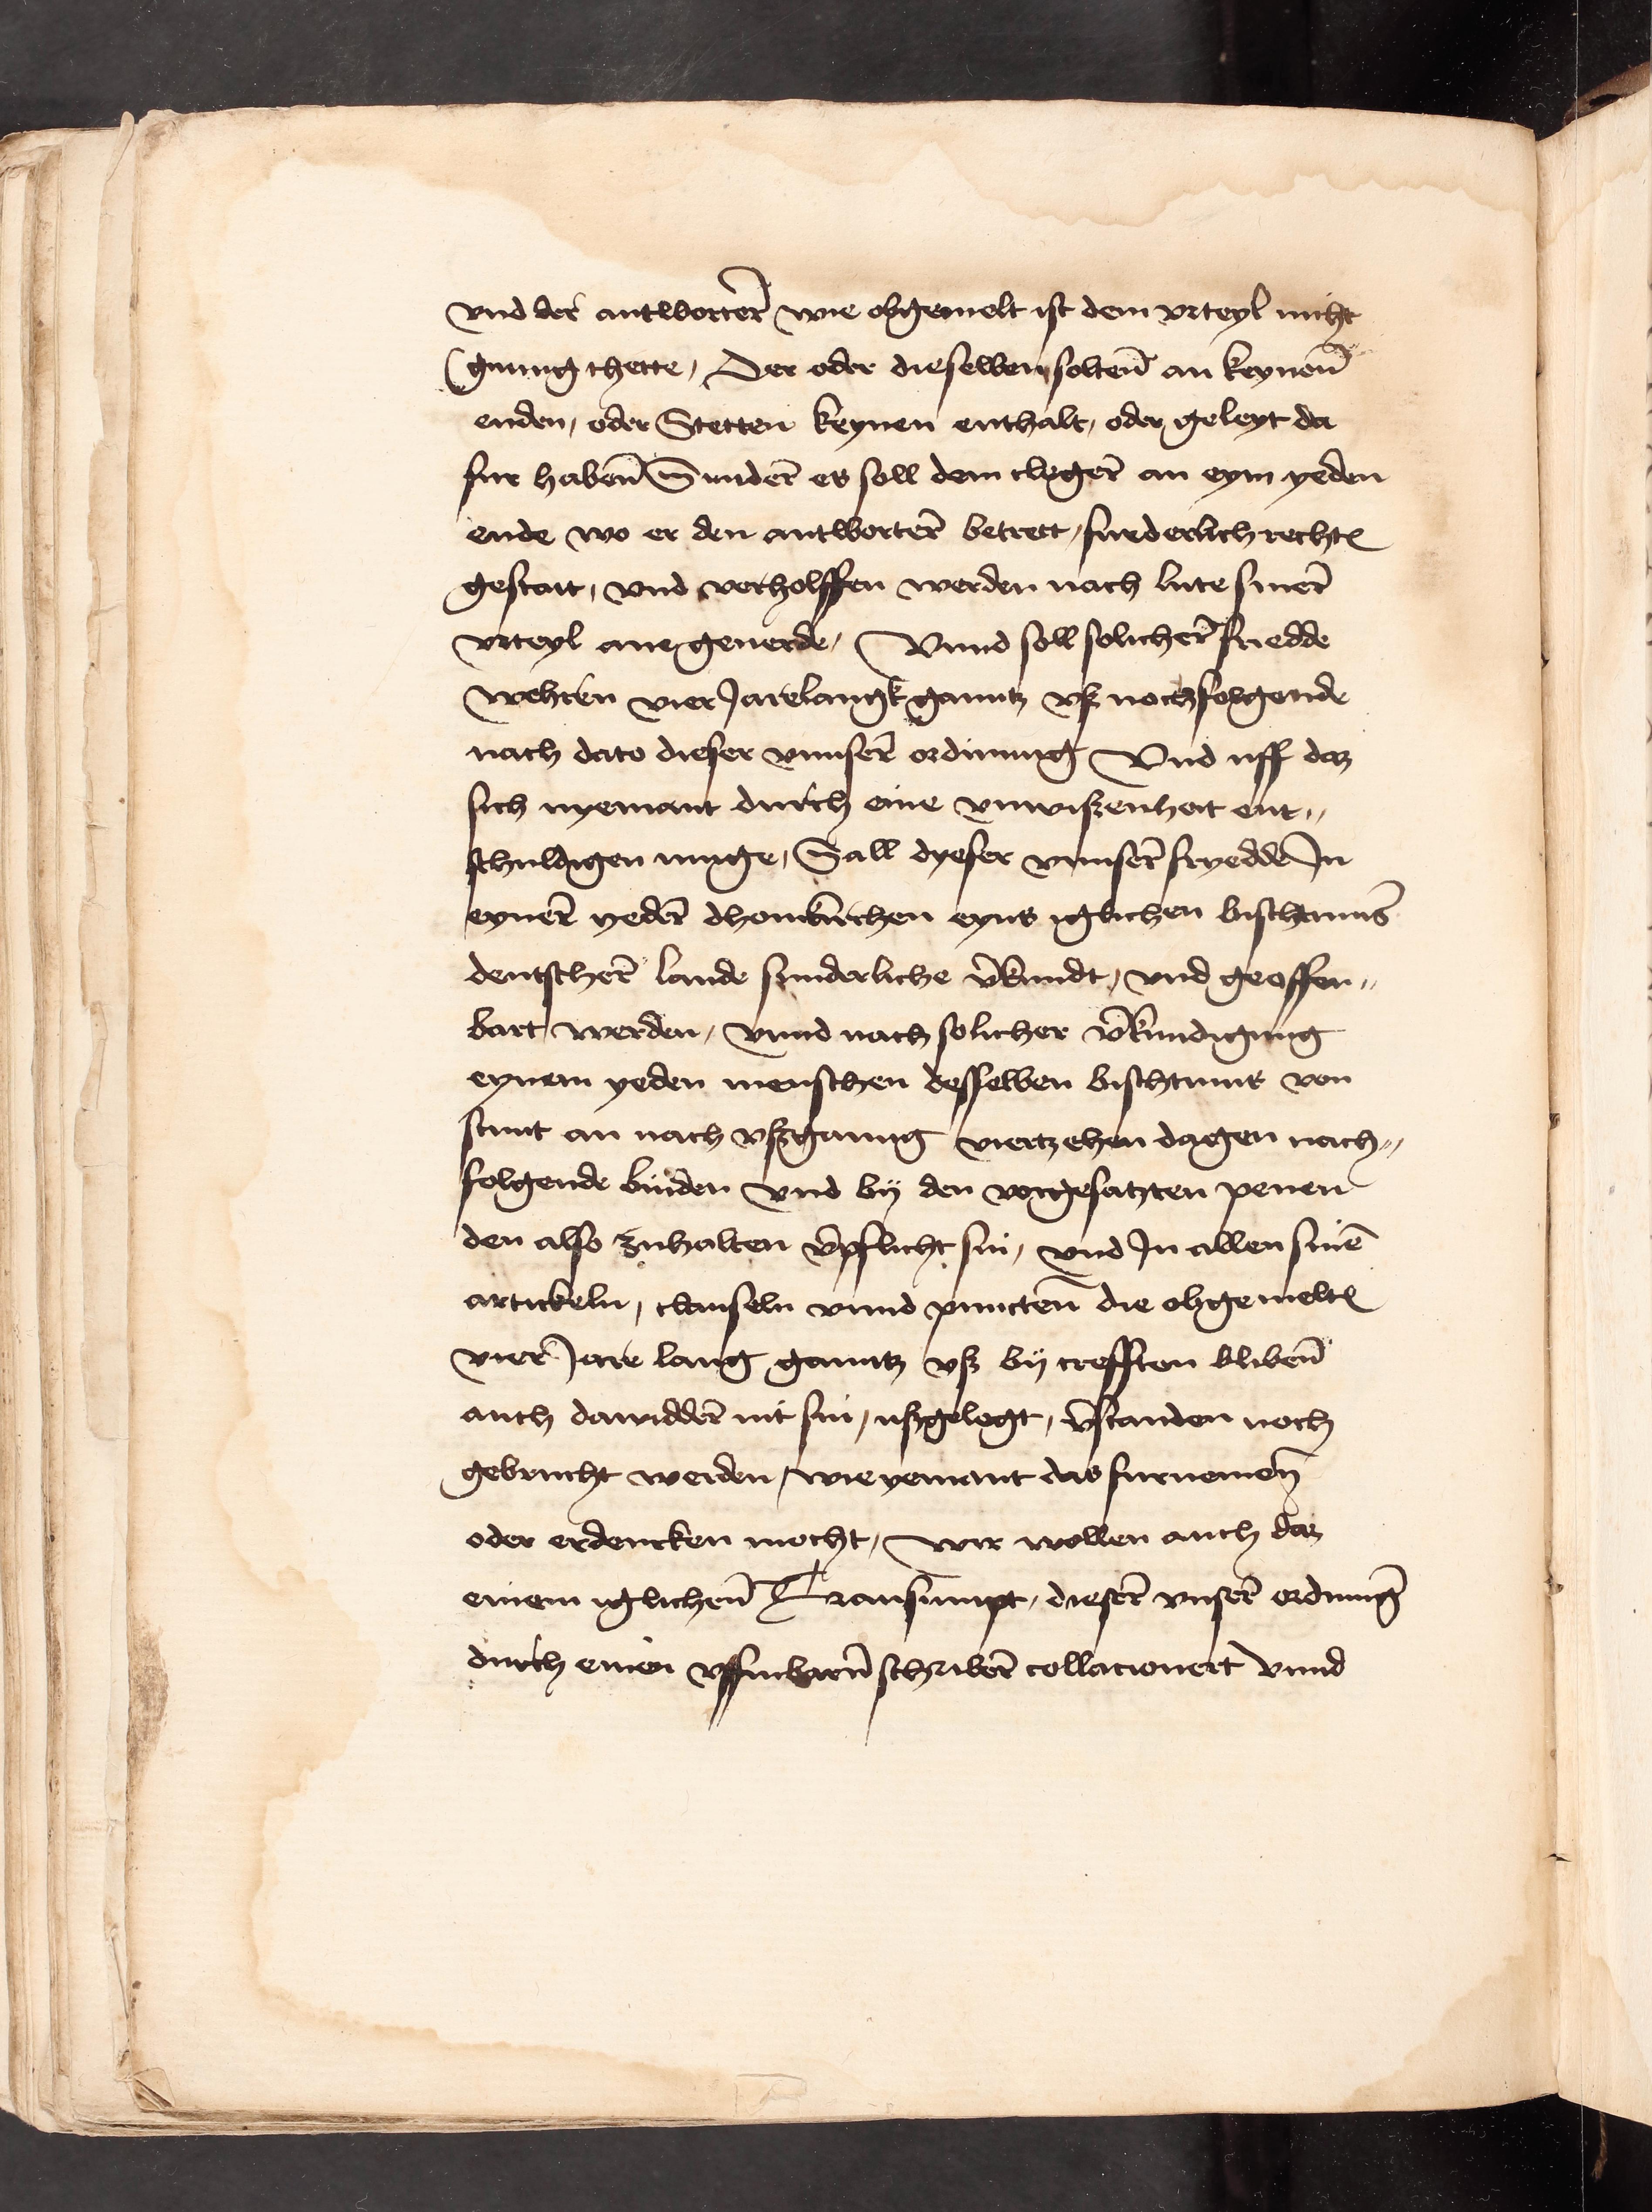 vnd der antworter̄ wie obgemelt ist dem vrteyl nicht
gnung thette, Der oder dieselben solten̄ an keynen̄
enden, oder Stetten keynen enthalt, oder geleyt da
fur haben̄ Sunder̄ es soll dem cleger̄ an eym yeden
ende wo er den antworter̄ betrett, furderlich rechts
gestatt, vnd verholffen werden nach lute siner̄
vrteyl ane geuerde, Vnnd soll solicher̄ friedde
wehren vier Jarelangk ganntz vß nochfolgende
nach dato dieser vnnser̄ ordnung Vnd uff daz
sich nyemant durch eine vnwißenheit ent„
schuldigen muge, Sall dyeser vnnser̄ fryedde In
eyner̄ yeder̄ dhomkirchen eyns iglichen bischtums
deutscher̄ lande sunderliche v̄kundt, vnd geoffen„
bart werden, vnnd nach solicher v̄kundigung
eynem yeden menschen desselben bischtums von
stunt an nach vßganng viertzehen dagen nach„
folgende binden vnd bÿ den vorgesatzten penen
den also zuhalten v̄pflicht sin, vnd In allen sinē
artickeln, clauseln vnnd puncten̄ die obgemelt
vier Jare lang ganntz vß bÿ crefften bliben̄
auch dawidder̄ nit sin, ußgelegt, v̄standen noch
gebrucht werden, wie yemant das furnemen̄
oder erdencken mocht, wir wollen auch daz
einem iglichen̄ Transumpt, dieser̄ vnser̄ ordnung
durch einen vffinbarn̄ schriber̄ collacionert vnnd